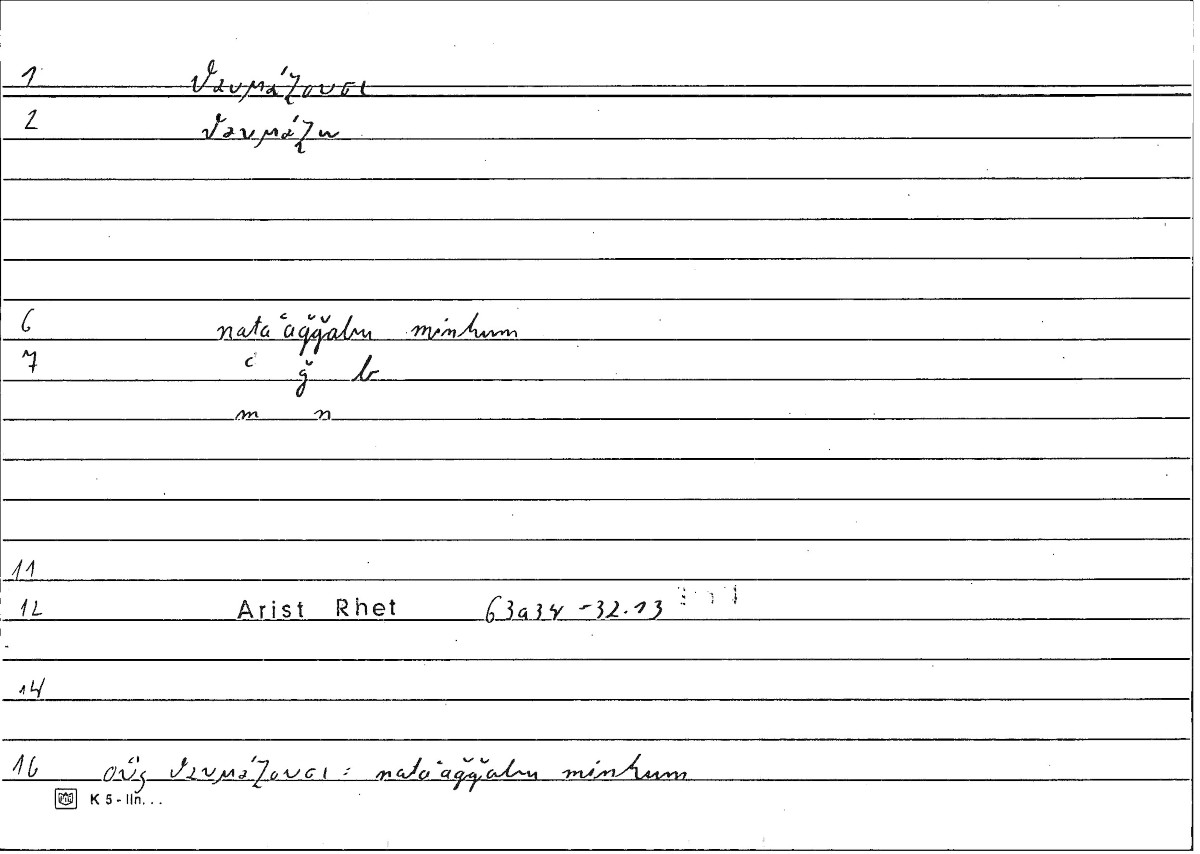 1 θαυμάζουσι
2 θαυμάζω
6 nataʿaǧǧabu minhum
7 ʿ ǧ b
m n
11
12 Arist Rhet 63a34 -32.13
14
16 οὓς θαυμάζουσι : nataʿaǧǧabu minhum
K 5 - IIn. . .